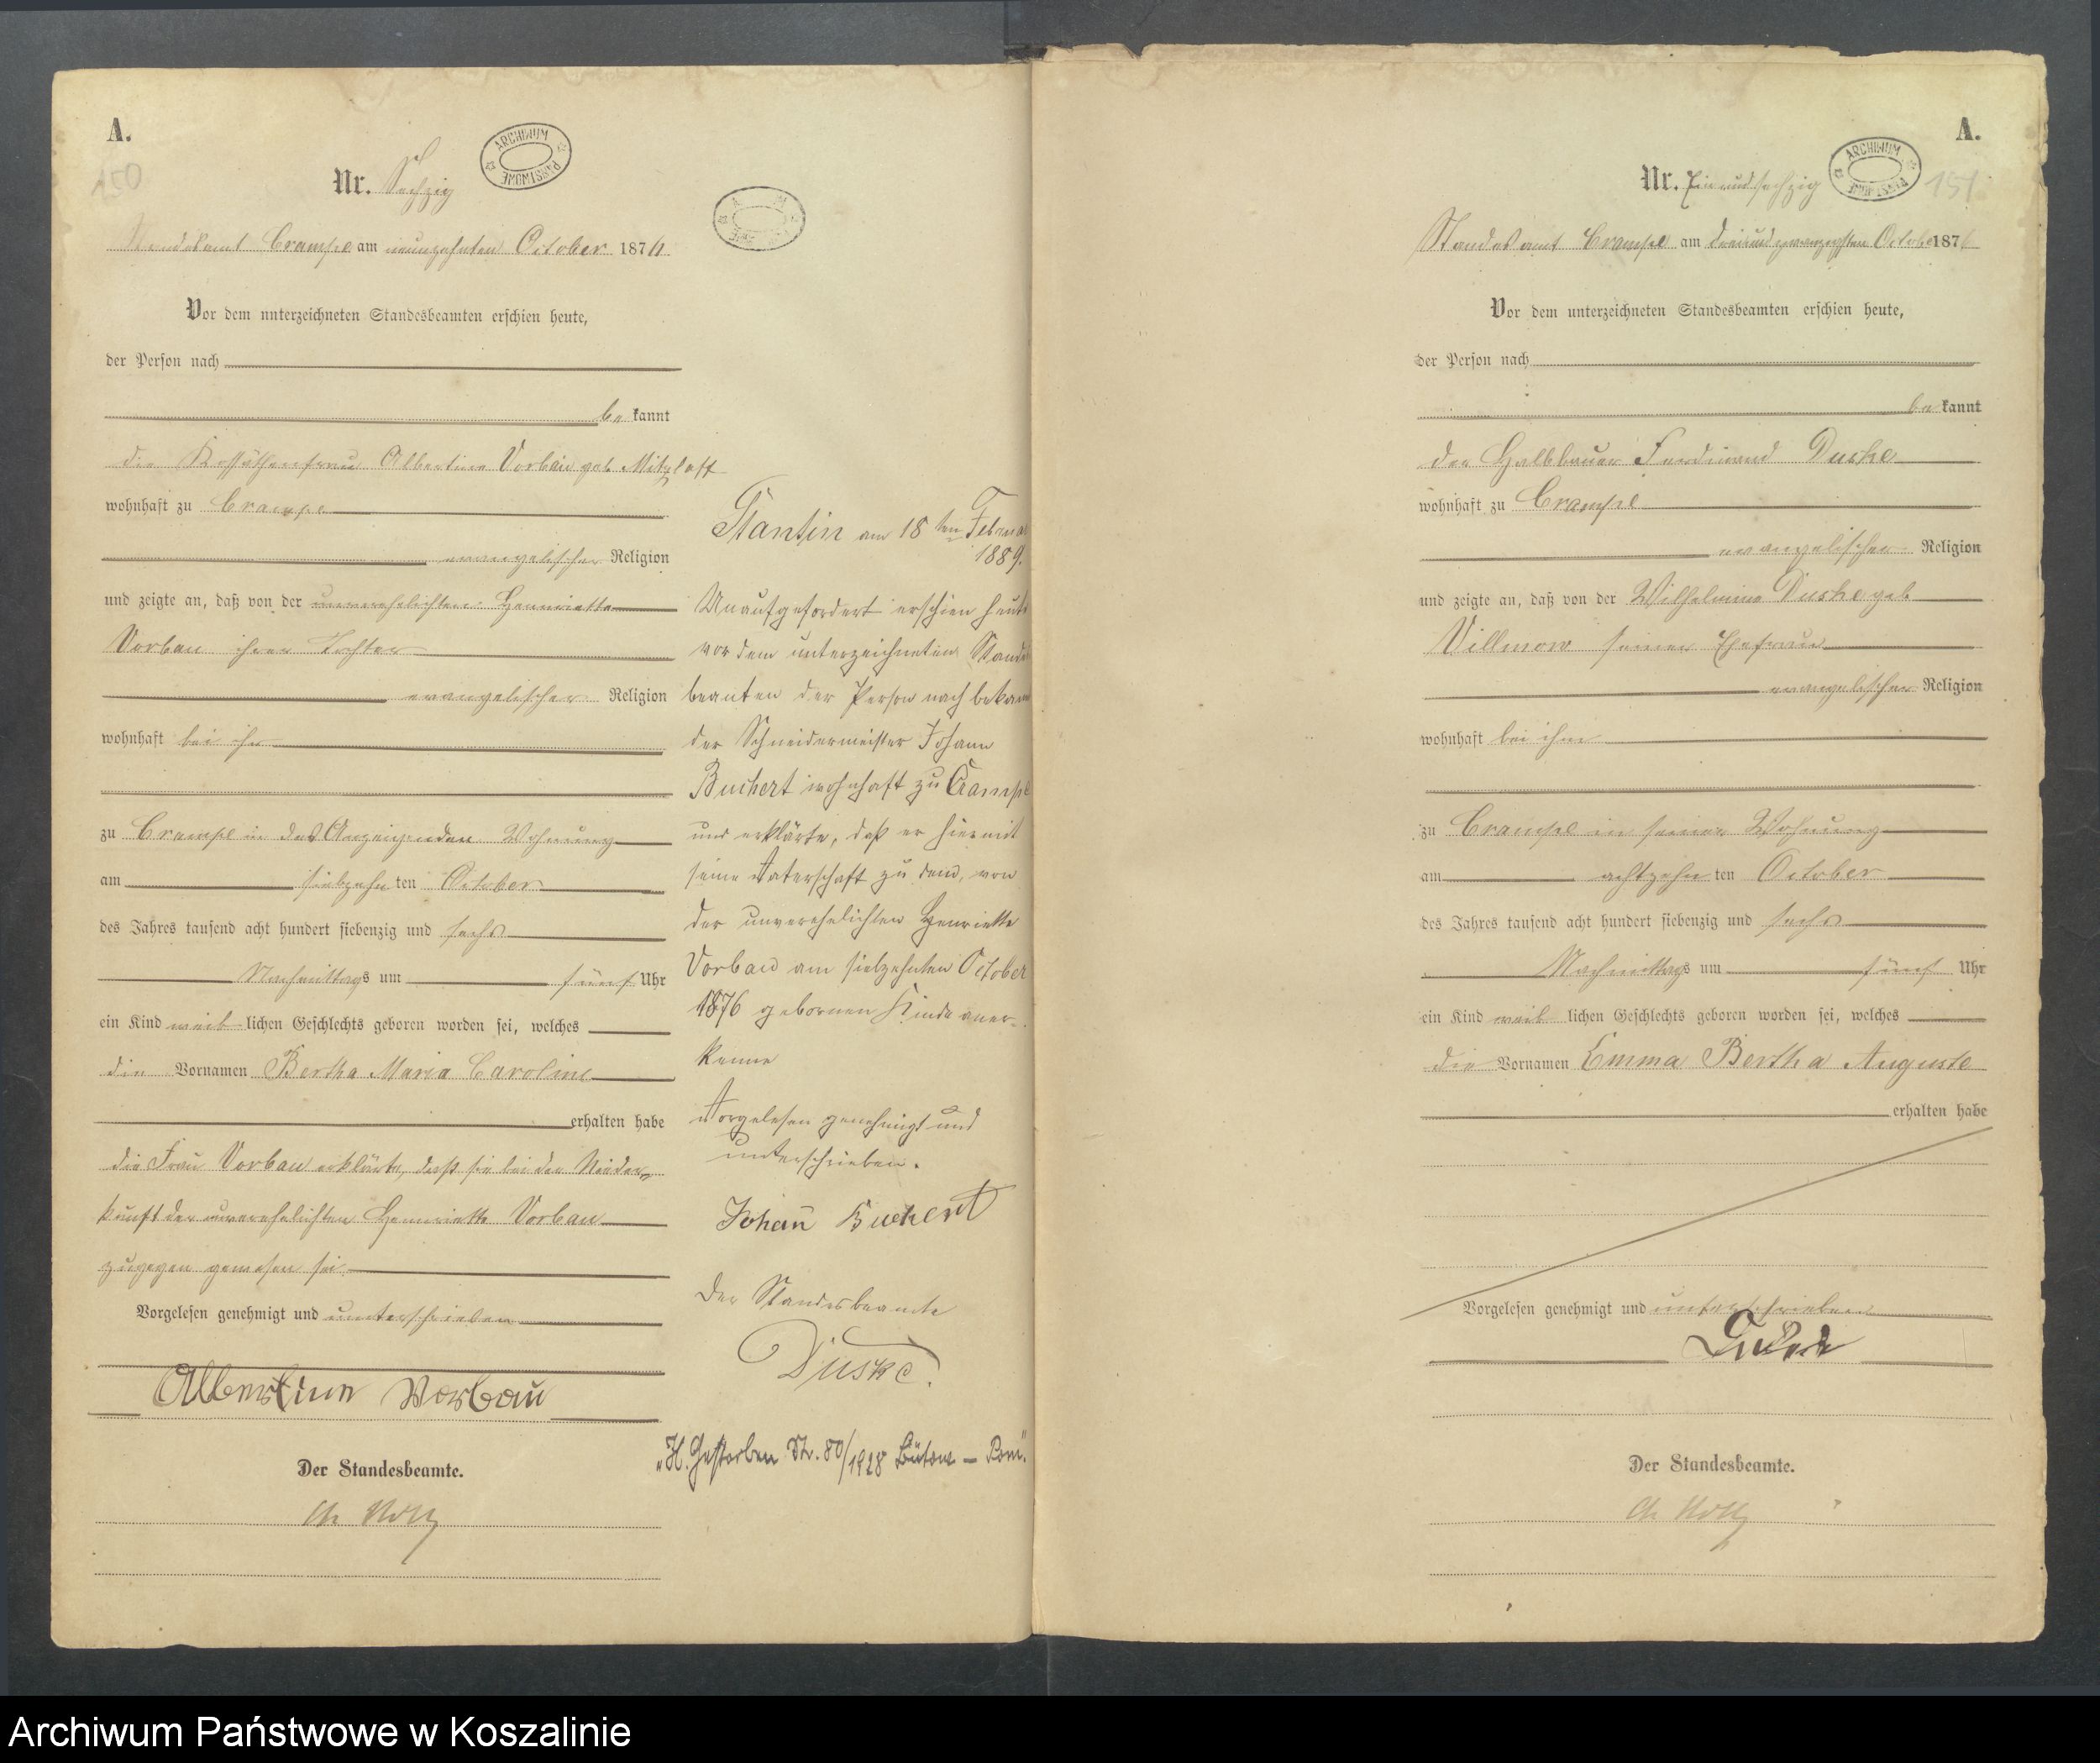 A.
150
Nr. Sechzig
ARCHIWUM PAŃSTWOWE
Standesamt Crampe am neunzehnten October 1876
Vor dem unterzeichneten Standesbeamten erschien heute,
der Person nach
be kannt
die Kossäthenfrau Albertine Vorbau geb. Mitzlaff
wohnhaft zu Crampe
evangelischer Religion
und zeigte an, daß von der unverehelichten Henriette
Vorbau ihrer Tochter
evangelischer Religion
wohnhaft bei ihr
zu Crampe in der Anzeigenden Wohnung
am siebzehn ten October
des Jahres tausend acht hundert siebenzig und sechs
Nachmittags um fünf Uhr
ein Kind weib lichen Geschlechts geboren worden sei, welches
die Vornamen Bertha Maria Caroline
erhalten habe
die Frau Vorbau erklärte, daß sie bei der Nieder-
kunft der unverehelichten Henriette Vorbau
zugegen gewesen sei.
Vorgelesen genehmigt und unterschrieben
Albertine Vorbau
Der Standesbeamte.
Stantin am 18ten Februar
1889.
Unaufgefordert erschien heute
vor dem unterzeichneten Standes
beamten der Person nach bekannt
der Schneidermeister Johann
Buchert wohnhaft zu Crampe
und erklärte, daß er hiermit
seine Vaterschaft zu dem, von
der unverehelichten Henriette
Vorbau am siebzehnten October
1876 gebornen Kinde aner-
kenne
Vorgelesen genehmigt und
unterschrieben.
Johann Buchert
Der Standesbeamte
Duske.
"H. Gestorben Nr. 80/1928 Bütow – Pom."
A.
Nr. Ein und sechzig
ARCHIWUM PAŃSTWOWE
151
Standesamt Crampe am dreiundzwanzigsten October 1876
Vor dem unterzeichneten Standesbeamten erschien heute,
der Person nach
be kannt
der Halbbauer Ferdinand Duske
wohnhaft zu Crampe
evangelischer Religion
und zeigte an, daß von der Wilhelmine Duske geb
Villmow seiner Ehefrau
evangelischer Religion
wohnhaft bei ihm
zu Crampe in seiner Wohnung
am achtzehn ten October
des Jahres tausend acht hundert siebenzig und sechs
Nachmittags um fünf Uhr
ein Kind weib lichen Geschlechts geboren worden sei, welches
die Vornamen Emma Bertha Auguste
erhalten habe
Vorgelesen genehmigt und unterschrieben
Duske
Der Standesbeamte.
Archiwum Państwowe w Koszalinie